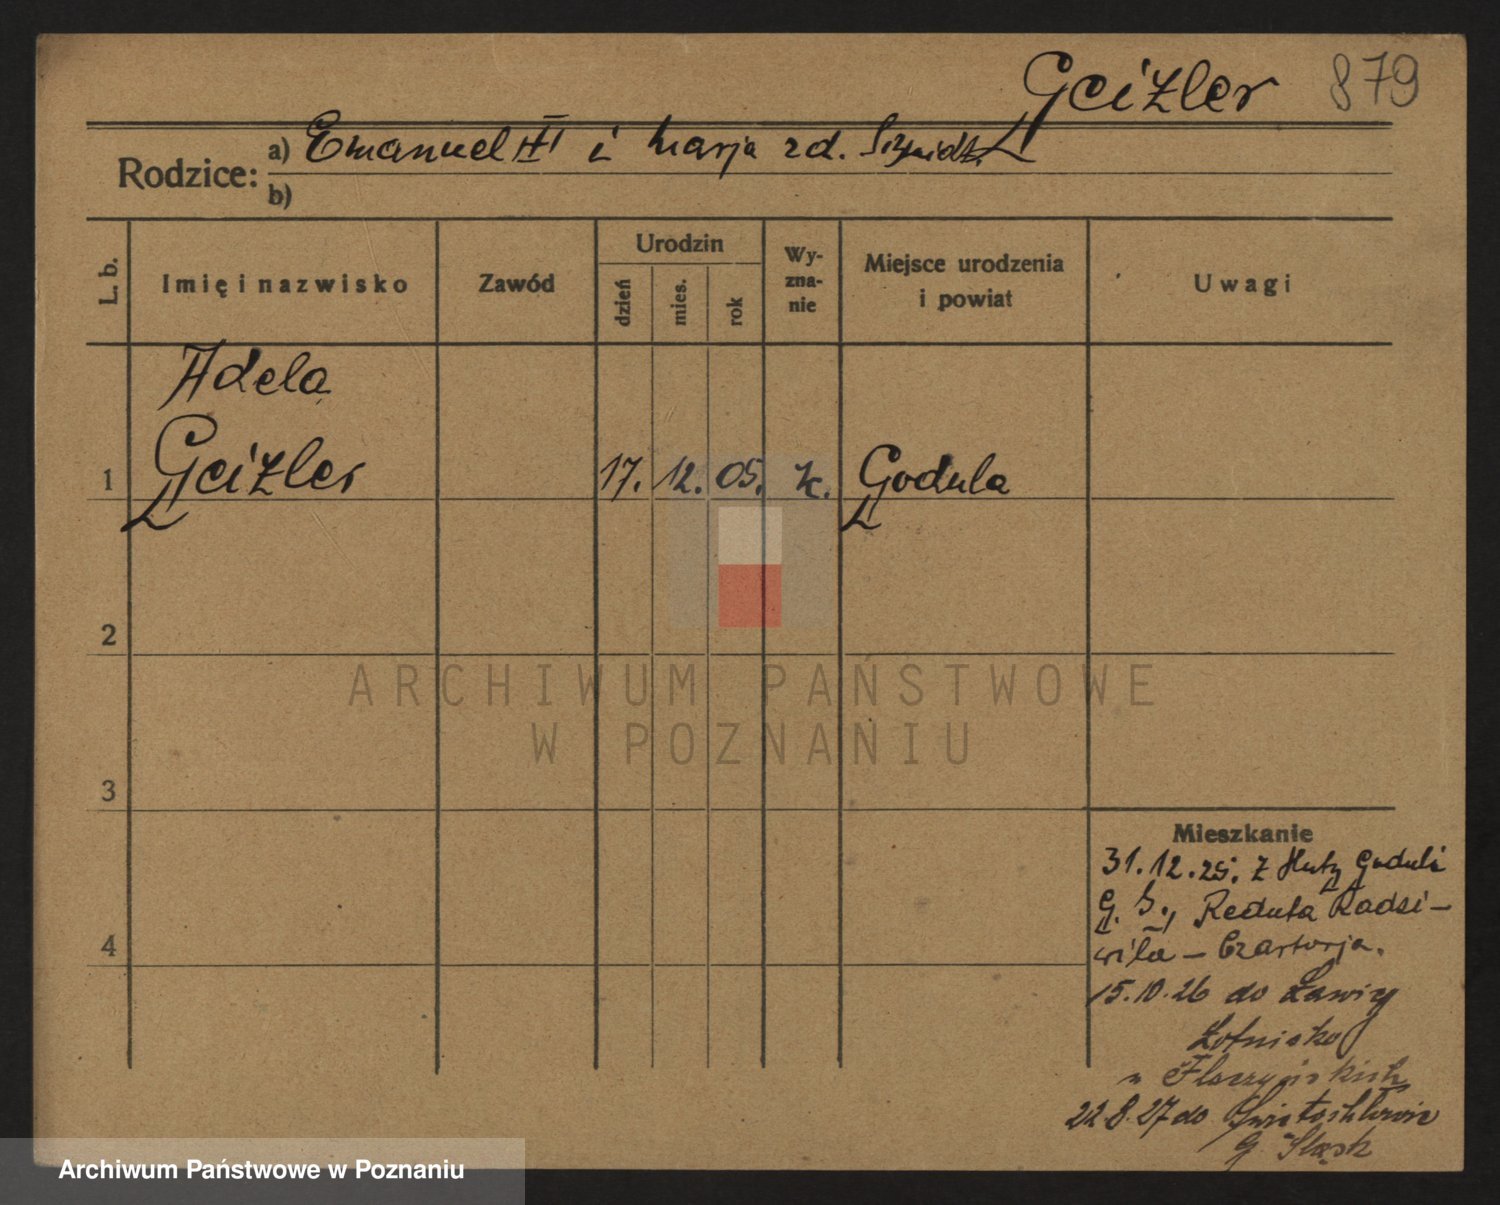 Geizler 879
Rodzice: a) Emanuel i Marja zd. Szmidt
b)
L. b. Imię i nazwisko Zawód Urodzin dzień mies. rok Wy-zna-nie Miejsce urodzenia i powiat Uwagi
Adela
1 Geizler 17. 12. 05. k. Godula
2
ARCHIWUM PAŃSTWOWE
W POZNANIU
3
Mieszkanie
31.12.25. z Huty Goduli
G. S., Reduta Radzi-
4
wiła - Czartorja.
15.10.26 do Ławicy
Lotnisko
u
22.8.27 do Świętochłowic
G. Śląsk
Archiwum Państwowe w Poznaniu